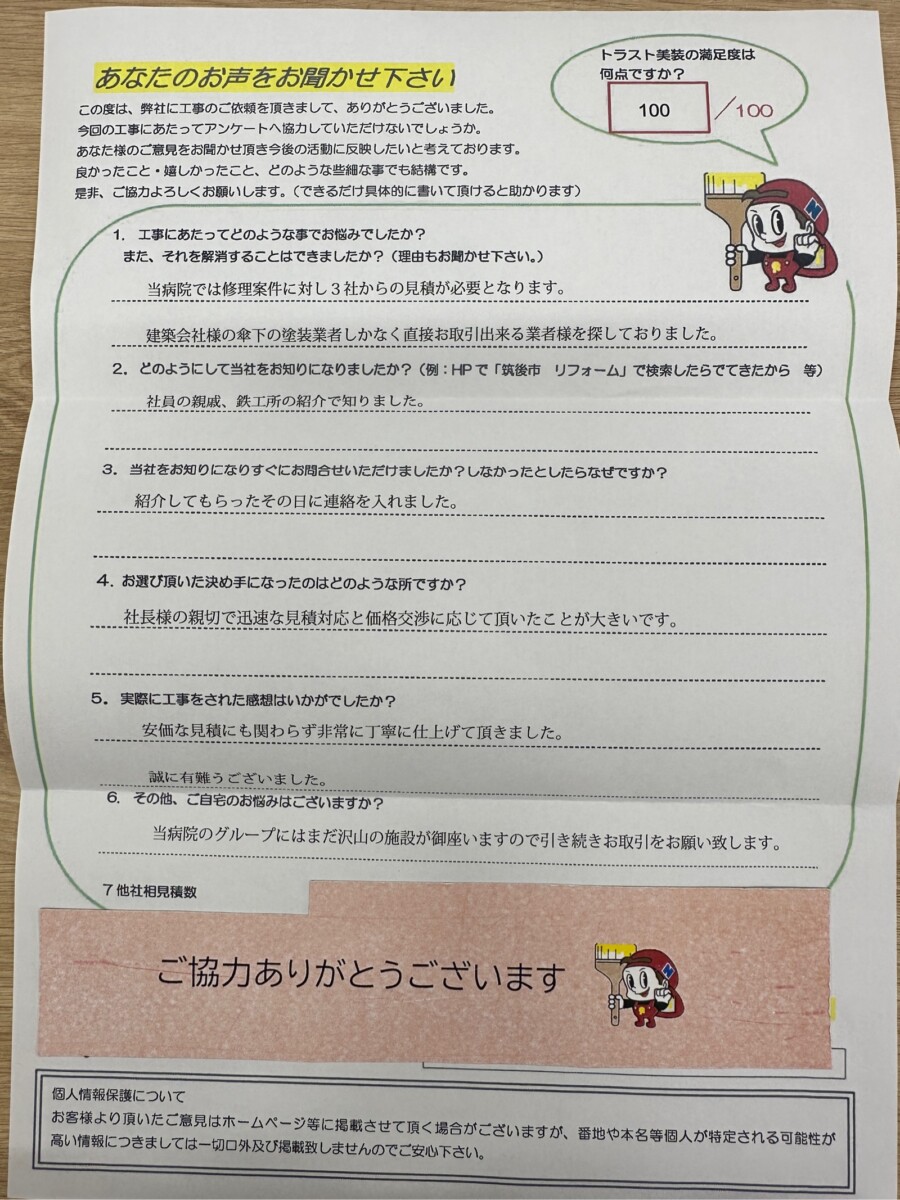 あなたのお声をお聞かせ下さい
トラスト美装の満足度は
何点ですか？
100／100
この度は、弊社に工事のご依頼を頂きまして、ありがとうございました。
今回の工事にあたってアンケートへ協力していただけないでしょうか。
あなた様のご意見をお聞かせ頂き今後の活動に反映したいと考えております。
良かったこと・嬉しかったこと、どのような些細な事でも結構です。
是非、ご協力よろしくお願いします。（できるだけ具体的に書いて頂けると助かります）
1．工事にあたってどのような事でお悩みでしたか？
また、それを解消することはできましたか？（理由もお聞かせ下さい。）
当病院では修理案件に対し３社からの見積が必要となります。
建築会社様の傘下の塗装業者しかなく直接お取引出来る業者様を探しておりました。
2．どのようにして当社をお知りになりましたか？（例：HPで「筑後市　リフォーム」で検索したらでてきたから　等）
社員の親戚、鉄工所の紹介で知りました。
3．当社をお知りになりすぐにお問合せいただけましたか？しなかったとしたらなぜですか？
紹介してもらったその日に連絡を入れました。
4．お選び頂いた決め手になったのはどのような所ですか？
社長様の親切で迅速な見積対応と価格交渉に応じて頂いたことが大きいです。
5．実際に工事をされた感想はいかがでしたか？
安価な見積にも関わらず非常に丁寧に仕上げて頂きました。
誠に有難うございました。
6．その他、ご自宅のお悩みはございますか？
当病院のグループにはまだ沢山の施設が御座いますので引き続きお取引をお願い致します。
7 他社相見積数
ご協力ありがとうございます
個人情報保護について
お客様より頂いたご意見はホームページ等に掲載させて頂く場合がございますが、番地や本名等個人が特定される可能性が
高い情報につきましては一切口外及び掲載致しませんのでご安心下さい。